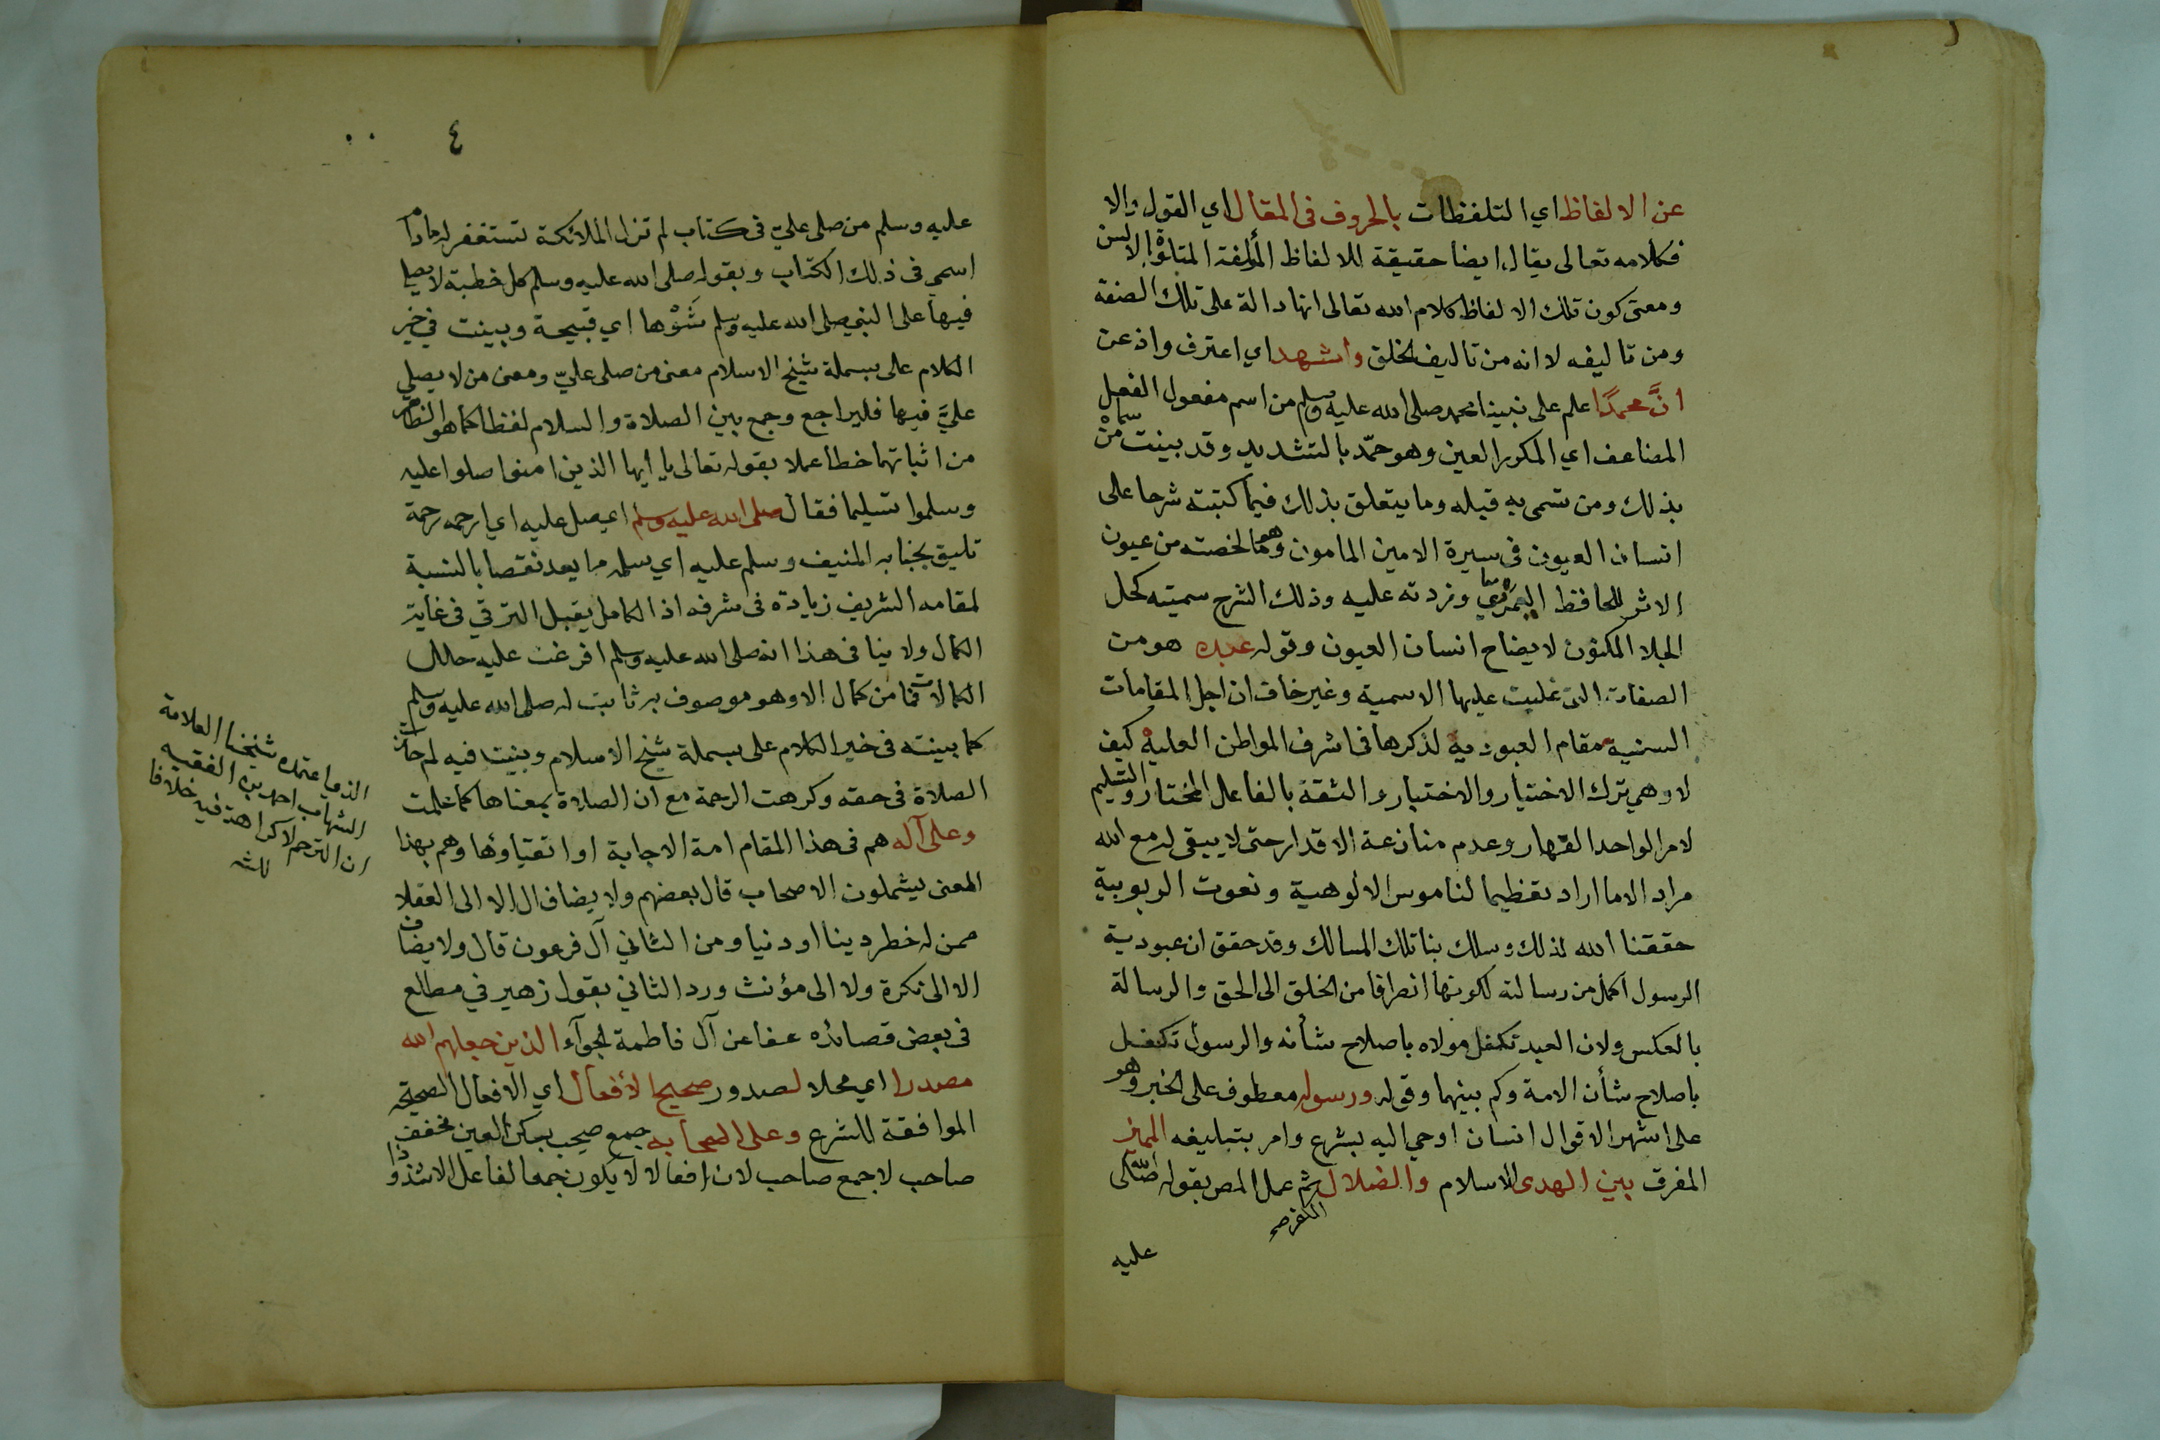 عن الالفاظ اي التلفظات بالحروف في المقال اي القول والا
فكلامه تعالى يقال ايضا حقيقة للالفاظ المؤلفة المتلوة بالالسن
ومعنى كون تلك الالفاظ كلام الله تعالى انها دالة على تلك الصفة
ومن تاليفه لا انه من تاليف الخلق واشهد اي اعترف واذعن
انَّ محمدًا علم على نبينا محمد صلى الله عليه وسلم من اسم مفعول الفعل
المضاعف اي المكرر العين وهو حمّد بالتشديد وقد بينت من
بذلك ومن تسمى به قبله وما يتعلق بذلك فيما كتبته شرحا على
انسان العيون في سيرة الامين المامون وهو مما لخصته من عيون
الاثر للحافظ اليعمري وزدته عليه وذلك الشرح سميته كحل
الجلا المكنون لايضاح انسان العيون وقوله عبده هو من
الصفات التي غلبت عليها الاسمية وغير خاف ان اجل المقامات
السنية مقام العبودية لذكرها في اشرف المواطن العلية كيف
لا وهي ترك الاختيار والاختبار والثقة بالفاعل المختار والتسليم
لامر الواحد القهار وعدم منازعة الاقدار حتى لا يبقى له مع الله
مراد الا ما اراد تعظيما لناموس الالوهية ونعوت الربوبية
حققنا الله لذلك وسلك بنا تلك المسالك وقد حقق ان عبودية
الرسول اكمل من رسالته لكونها انصرافا من الخلق الى الحق والرسالة
بالعكس ولان العبد تكفل مولاه باصلاح شأنه والرسول تكفل
باصلاح شأن الامة وكم بينهما وقوله ورسوله معطوف على الخبر وهو
على اشهر الاقوال انسان اوحي اليه بشرع وامر بتبليغه المميز
المفرق بين الهدى الاسلام والضلال الكفر ثم عمل المص بقوله صلى الله
عليه
٤
عليه وسلم من صلى عليّ في كتاب لم تزل الملائكة تستغفر له ما دام
اسمي في ذلك الكتاب وبقوله صلى الله عليه وسلم كل خطبة لا يصلى
فيها على النبي صلى الله عليه وسلم شَوْها اي قبيحة وبينت في خير
الكلام على بسملة شيخ الاسلام معنى من صلى عليّ ومعنى من لا يصلي
عليَّ فيها فليراجع وجمع بين الصلاة والسلام لفظا كما هو الظاهر
من اثباتهما خطا عملا بقوله تعالى يا ايها الذين امنوا صلوا عليه
وسلموا تسليما فقال صلى الله عليه وسلم اي صل عليه اي ارحمه رحمة
تليق بجنابه المنيف وسلم عليه اي سلمه مما يعد نقصا بالنسبة
لمقامه الشريف زيادة في شرفه اذ الكامل يقبل الترقي في غاية
الكمال ولا ينافي هذا انه صلى الله عليه وسلم افرغت عليه حلل
الكمالات فما من كمال الا وهو موصوف به ثابت له صلى الله عليه وسلم
كما بينته في خير الكلام على بسملة شيخ الاسلام وبينت فيه لم جازت
الصلاة في حقه وكرهت الرحمة مع ان الصلاة بمعناها كما علمت
وعلى آله هم في هذا المقام امة الاجابة او اتقياؤها وهم بهذا
المعنى يشملون الاصحاب قال بعضهم ولا يضاف ال الا الى العقلا
ممن له خطر دينا او دنيا ومن الثاني آل فرعون قال ولا يضاف
الا الى نكرة ولا الى مؤنث ورد الثاني بقول زهير في مطالع
في بعض قصائده عفا عن آل فاطمة الجوآء الذين جعلهم الله
مصدرا اي محلا لصدور صحيح الأفعال اي الافعال الصحيحة
الموافقة للشرع وعلى اصحابه جمع صحب بكسر العين مخفف
صاحب لا جمع صاحب لان افعالا لا يكون جمعا لفاعل الا شذوذا
الذي اعتمده شيخنا العلامة
الشهاب احمد بن الفقيه
ان الترحم لا كراهة فيه خلافا
للشه